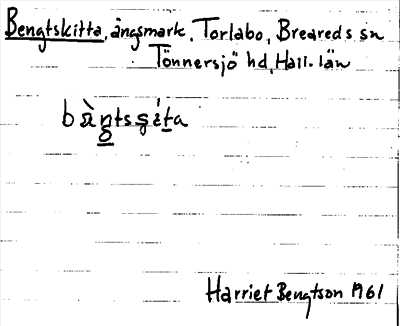 Bengtskitta, ängsmark, Torlabo, Breareds sn
Tönnersjö hd, Hall. län
Harriet Bengtson 1961